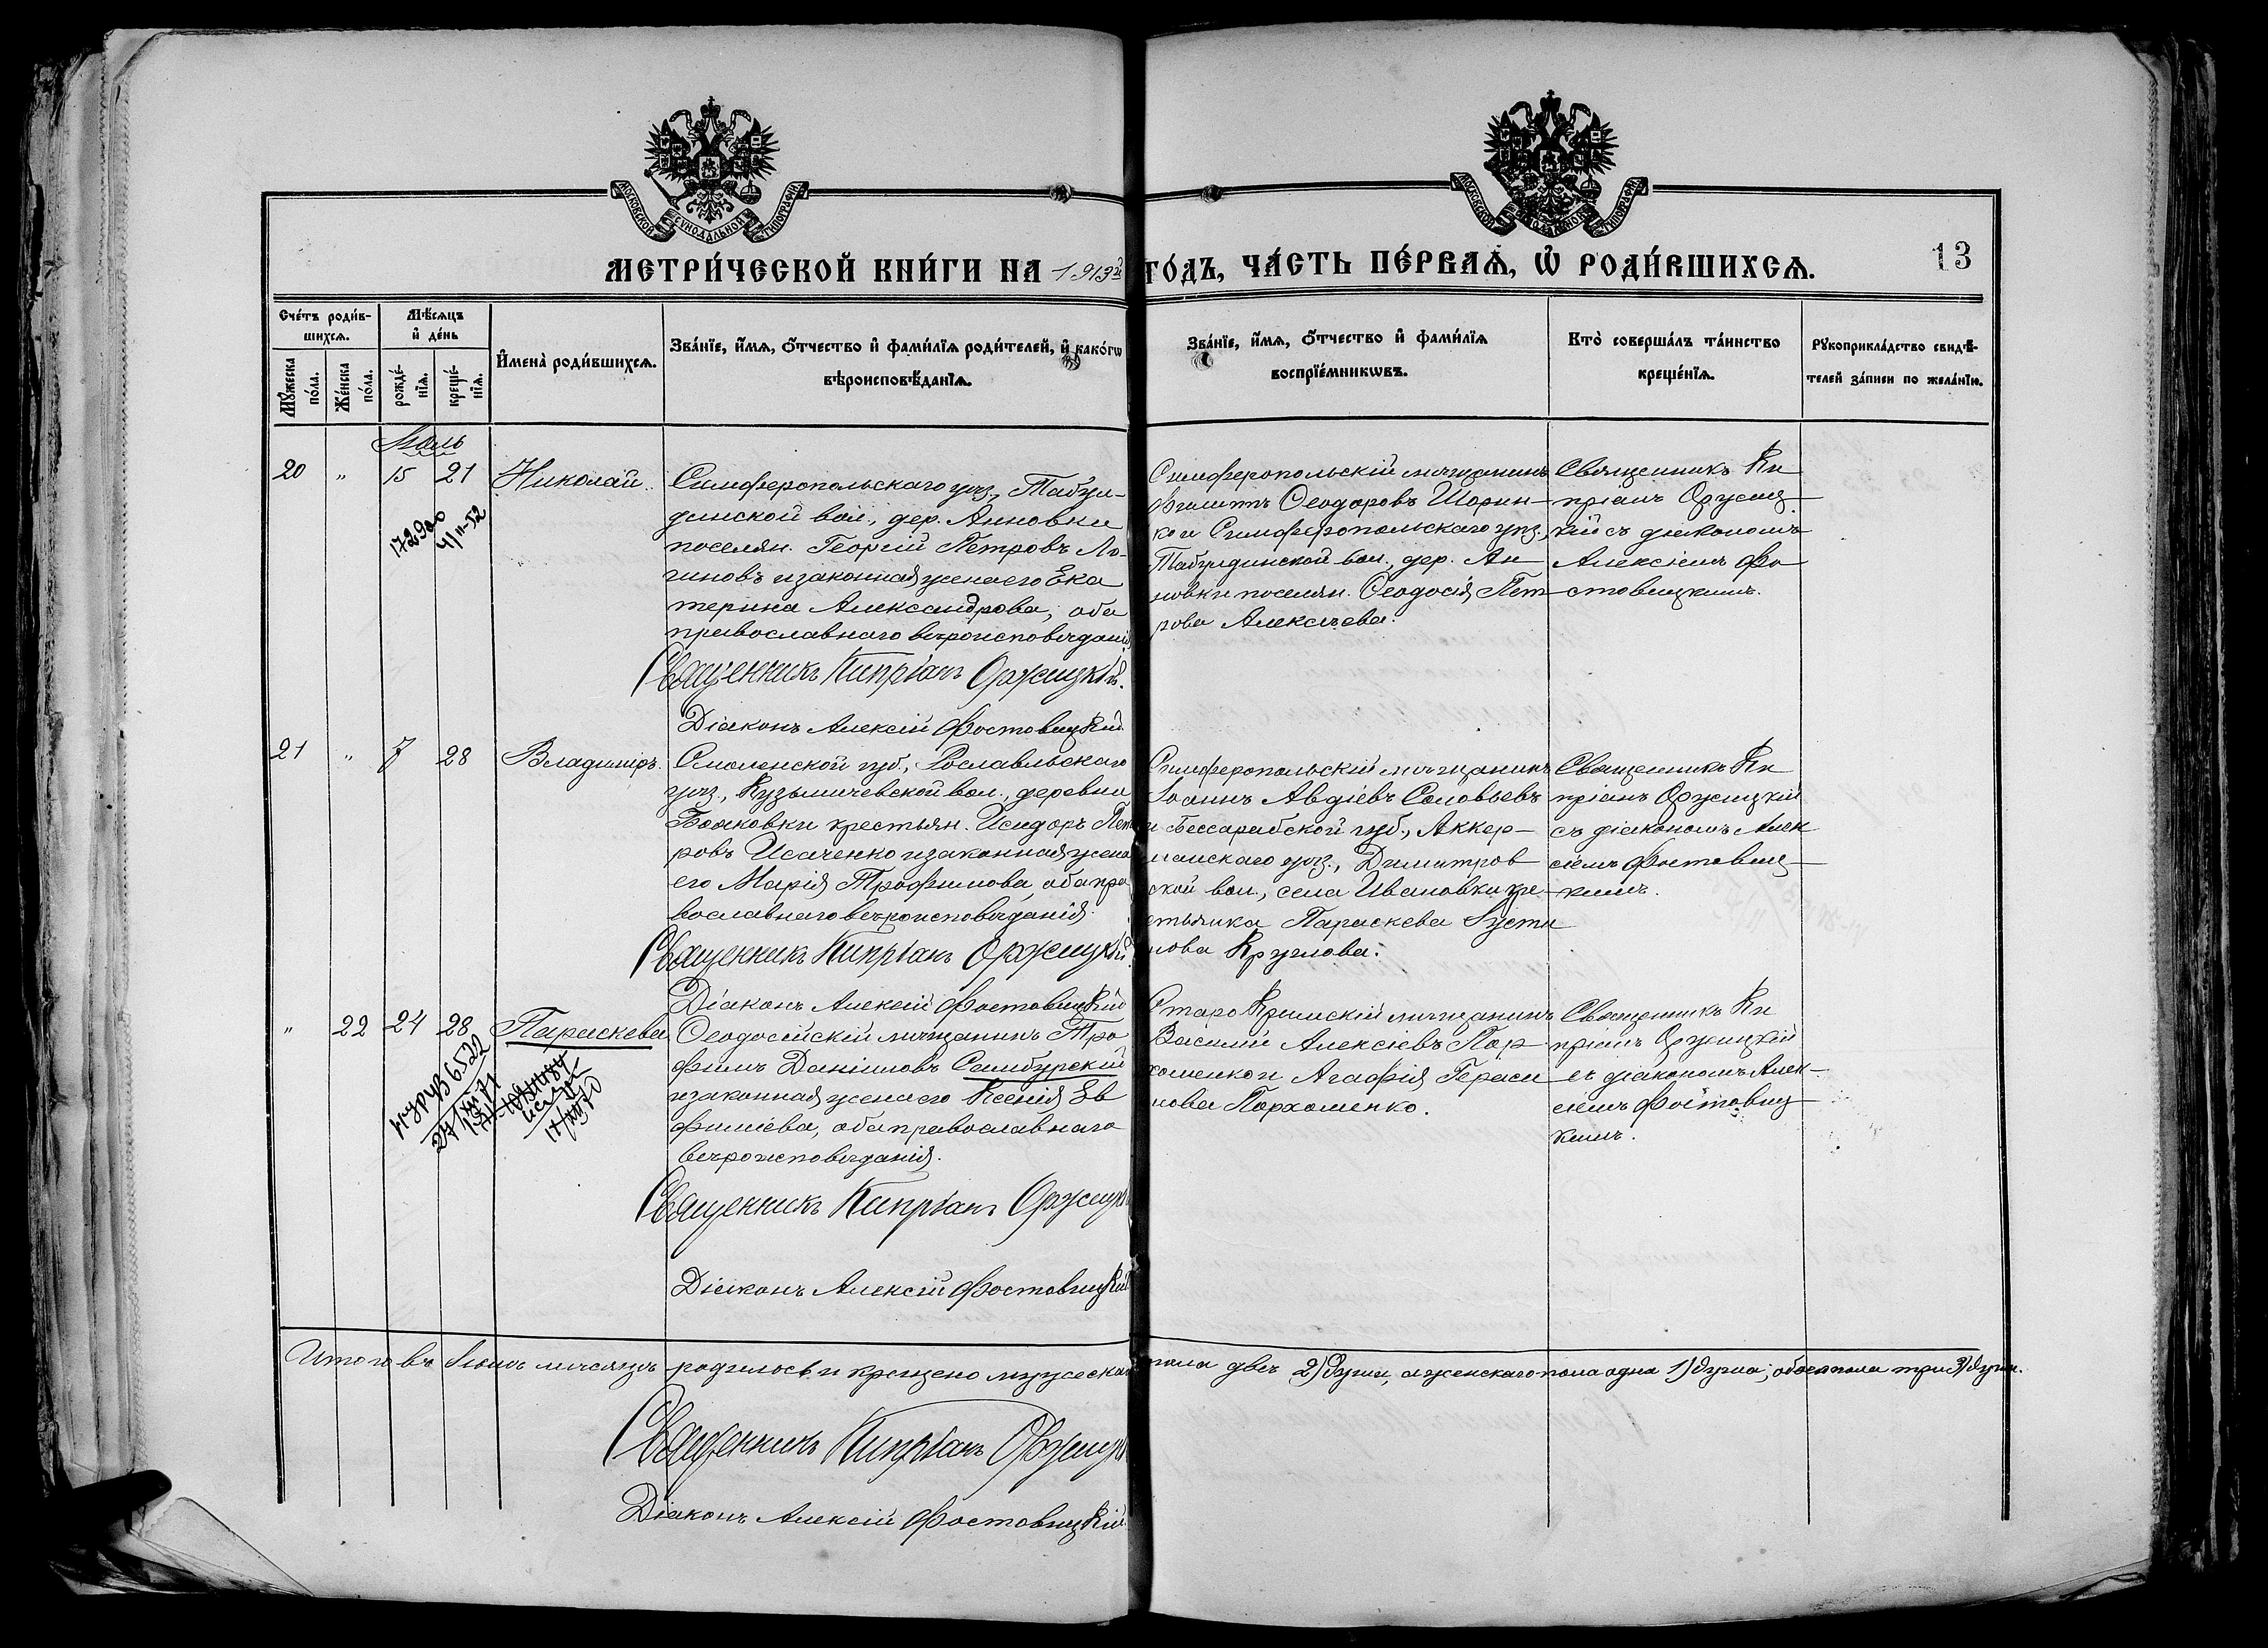 МОСКОВСКОЙ СѴНОДАЛЬНОЙ ТИПОГРАФІИ
МОСКОВСКОЙ СѴНОДАЛЬНОЙ ТИПОГРАФІИ
МЕТРИ́ЧЕСКОЙ КНИ́ГИ НА 1913й
ГО́ДЪ, ЧА́СТЬ ПЕ́РВАѦ, Ѡ҆ РОДИ́ВШИХСѦ.
13
Сче́тъ роди́в-
шихсѧ.
Мꙋ́жеска по́ла.
Же́нска по́ла.
Мѣ́сѧцъ
и҆ де́нь
рожде́-нїѧ.
креще́-нїѧ.
И҆мена̀ роди́вшихсѧ.
Зва́нїе, и҆́мѧ, ѻ҆́тчество и҆ фамилїѧ роди́телей, и҆ како́гѡ
вѣроисповѣ́данїѧ.
Зва́нїе, и҆́мѧ, ѻ҆́тчество и҆ фами́лїѧ
воспрїе́мникѡвъ.
Кто̀ соверша́лъ та́инство
креще́нїѧ.
Рꙋкоприкла́дство свидѣ́-
телей за́писи по жела́нїю.
20 " 15 21 Николай.
Симферопольскаго уѣз., Табул-
динской вол., дер. Анновки
поселян. Георгій Петровъ Ло-
гиновъ и законная жена его Ека
терина Александрова, оба
православнаго вѣроисповѣданія
Священникъ Кипріанъ Оржицкій.
Діаконъ Алексій Фостовицкій
Симферопольскій мѣщанинъ
Филиппъ Ѳеодоровъ Шорин-
ко и Симферопольскаго уѣз.,
Табулдинской вол., дер. Ан
новки поселян. Ѳеодосія Пет
рова Алексѣева.
Священникъ Ки
пріанъ Оржиц-
кій съ діакономъ
Алексіемъ Фо
стовицкимъ.
21 " 7 28 Владиміръ.
Смоленской губ., Рославльскаго
уѣз., Кузьмичевской вол., деревни
крестьян. Исидоръ Пет
ровъ Исаченко и законная жена
его Марія Трофимова, оба пра
вославнаго вѣроисповѣданія.
Священникъ Кипріанъ Оржицкій.
Діаконъ Алексій Фостовицкій
Симферопольскій мѣщанинъ
Іоаннъ Авдіевъ Соловьевъ
и Бессарабской губ., Аккер-
манскаго уѣз., Димитров
ской вол., села Ивановки кре-
стьянка Параскева Іусти
нова Круглова.
Священникъ Ки
пріанъ Оржицкій
съ діакономъ Алек
сіемъ Фостовиц-
кимъ.
" 22 24 28 Параскева
Ѳеодосійскій мѣщанинъ Тро
фимъ Даніиловъ Самбурскій
и законная жена его Ксенія Ев
фиміева, оба православнаго
вѣроисповѣданія.
Священникъ Кипріанъ Оржицк
Діаконъ Алексій Фостовицкій
Старо Крымскій мѣщанинъ
Василій Алексіевъ Пар
хоменко и Агафія Гераси
мова Пархоменко.
Священникъ Ки
пріанъ Оржицкій
съ діакономъ Алек-
сіемъ Фостовиц
кимъ.
Итого въ мѣсяцѣ родилось и крещено мужеска пола двѣ 2) души, а женскаго пола одна 1) душа; обоего пола три 3) души.
Священникъ Кипріанъ Оржицк
Діаконъ Алексій Фостовицкій.